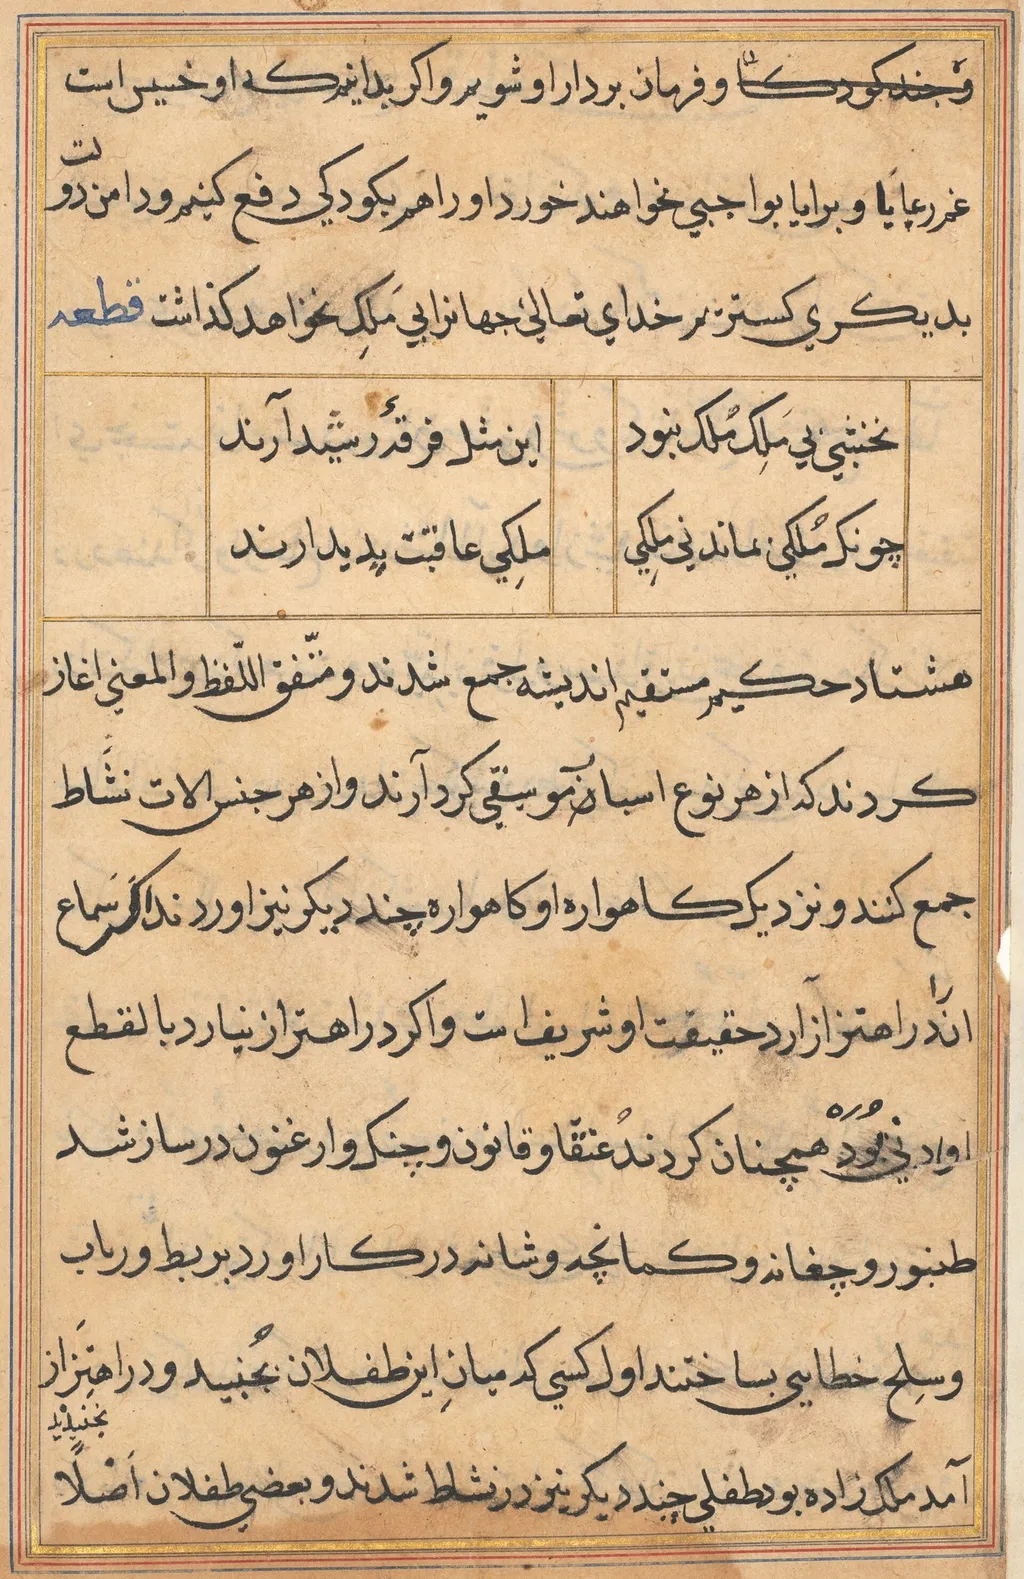 و چند کودک و فرمان بردار او شویم و اکر بدانیم که او خسیس است
غم رعایا و برایا بواجبی نخواهند خورد او را هم بکودکی دفع کنیم و دامن دولت
بدیکری کسترم خدای تعالی جهانرا بی مَلِک نخواهد کذاشت قطعه
نخشبی بی مَلِک مُلک نبود
این مثل فرقهٔ رشید آرند
چونک مُلکی نماند بی مَلِکی
ملِکی عاقبت پدید ارند
هشتاد حکیم مستقیم اندیشه جمع شدند و متّفق اللّفظ و المعنی اغاز
کردند که از هر نوع اسبان موسیقی کرد آرند و از هر جنس الات نشاط
جمع کنند و نزدیک کاهواره او کاهواره چند دیکر نیز اوردند اکر سَماع
انرا در اهتزاز آرد حقیقت او شریف است و اکر در اهتزاز نیارد بالقطع
او دنی بود همچنان کردند عنقا و قانون و چنک و ارغنون در ساز شد
طنبور و چغانه و کمانچه و شانه در کار اورد بربط و رباب
و سلِح خطایی بساختند اول کسی که میانِ این طفلان بجنبید و در اهتِزاز
آمد ملک زاده بود طفلی چند دیکر نیز در نشاط شدند و بعضی طفلان اَصْلًا
نجنبیدند